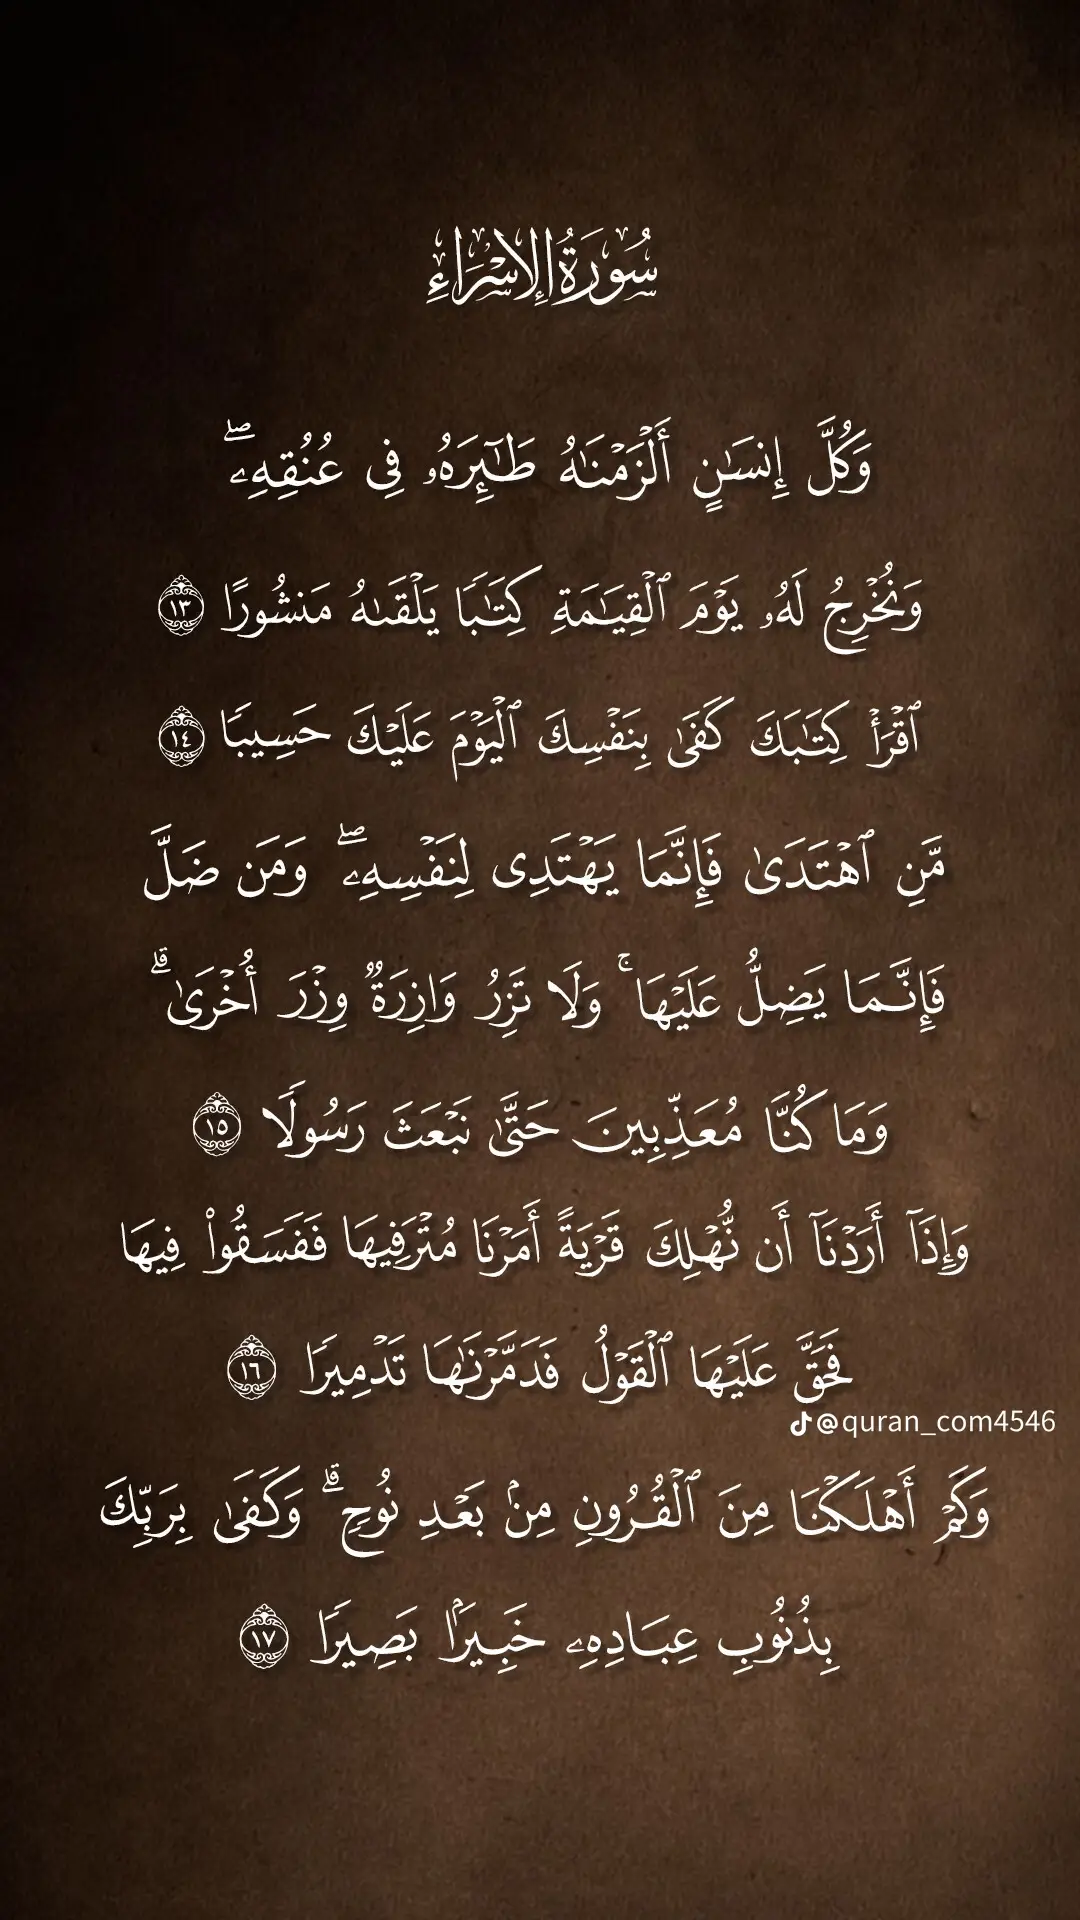 سُورَةُ الإِسْرَاءِ
وَكُلَّ إِنسَـٰنٍ أَلْزَمْنَـٰهُ طَـٰٓئِرَهُۥ فِى عُنُقِهِۦ ۖ
وَنُخْرِجُ لَهُۥ يَوْمَ ٱلْقِيَـٰمَةِ كِتَـٰبًا يَلْقَىٰهُ مَنشُورًا ١٣
ٱقْرَأْ كِتَـٰبَكَ كَفَىٰ بِنَفْسِكَ ٱلْيَوْمَ عَلَيْكَ حَسِيبًا ١٤
مَّنِ ٱهْتَدَىٰ فَإِنَّمَا يَهْتَدِى لِنَفْسِهِۦ ۖ وَمَن ضَلَّ
فَإِنَّمَا يَضِلُّ عَلَيْهَا ۚ وَلَا تَزِرُ وَازِرَةٌ وِزْرَ أُخْرَىٰ ۗ
وَمَا كُنَّا مُعَذِّبِينَ حَتَّىٰ نَبْعَثَ رَسُولًا ١٥
وَإِذَآ أَرَدْنَآ أَن نُّهْلِكَ قَرْيَةً أَمَرْنَا مُتْرَفِيهَا فَفَسَقُوا۟ فِيهَا
فَحَقَّ عَلَيْهَا ٱلْقَوْلُ فَدَمَّرْنَـٰهَا تَدْمِيرًا ١٦
@quran_com4546
وَكَمْ أَهْلَكْنَا مِنَ ٱلْقُرُونِ مِنۢ بَعْدِ نُوحٍ ۗ وَكَفَىٰ بِرَبِّكَ
بِذُنُوبِ عِبَادِهِۦ خَبِيرًۢا بَصِيرًا ١٧